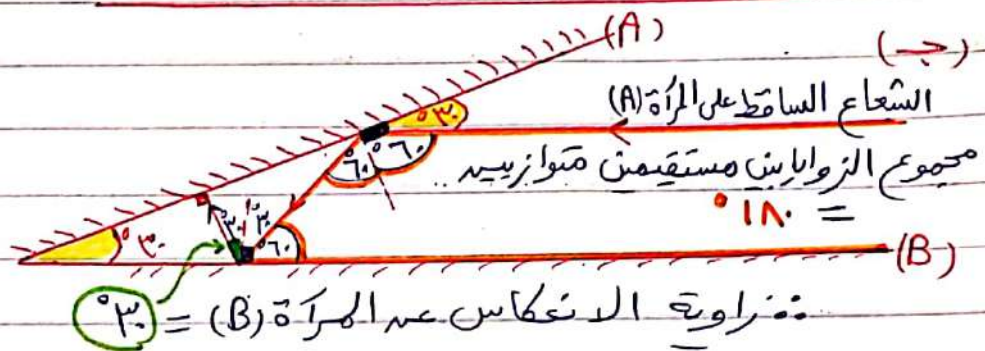 (A)
(ج)
الشعاع الساقط على المرآة (A)
°٣٠
°٦٠ °٦٠
مجموع الزوايا بين مستقيمين متوازيين
= ١٨٠°
°٣٠ °٣٠ °٣٠ °٦٠
(B)
∴ زاوية الانعكاس عن المرآة (B) = °٣٠